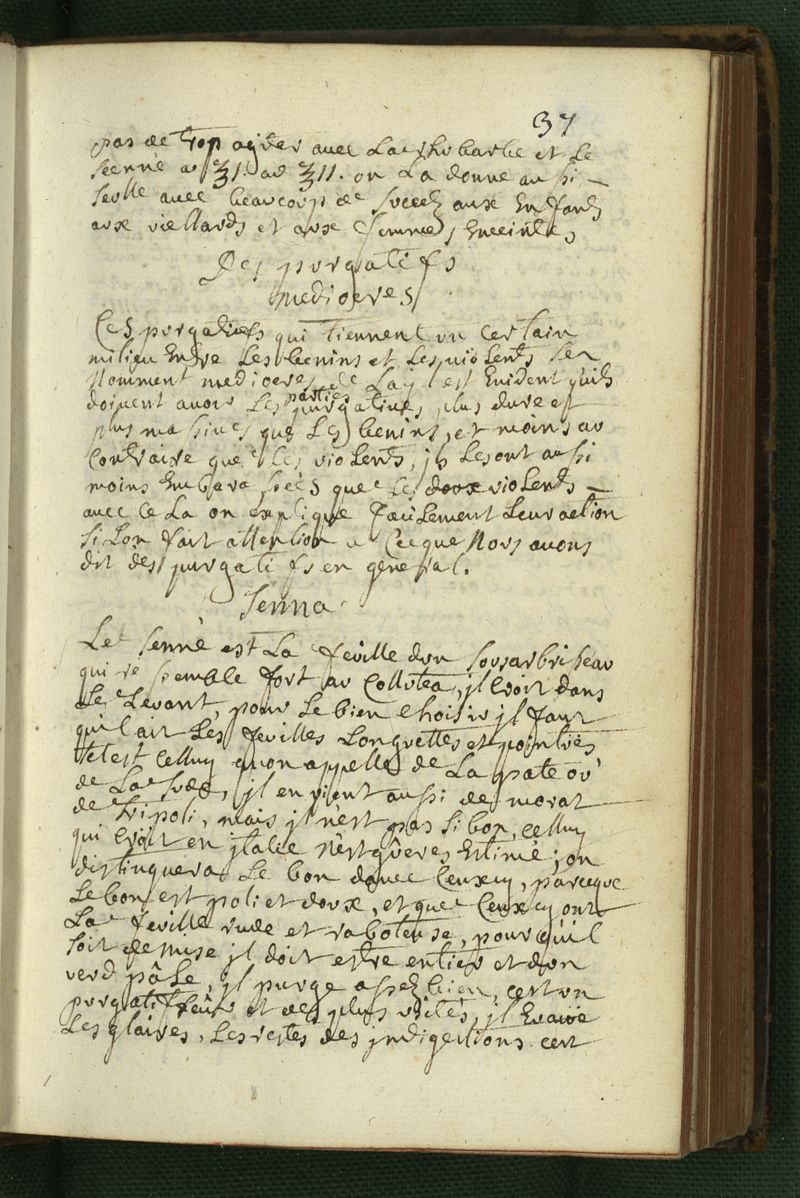 37
pas de trop ayder avec La rhubarbe et Le
senné a ʒ1. ou ʒ11. on La donne aussi
seulle avec beaucoup de succez aux Enfants
aux viellards et aux femmes Enceintes
Des purgatifs
mediocres
Ces purgatifs qui tiennent un certain
milieu Entre Les benins et Les violents Se
Nomment mediocres, de La jl est Evident quils
doivent avoir Les parties purgatives plus dure et
plus massives que Les benins, et moins au
Contraire que Les violents, js Les ont aussi
moins Embarassées que Les doux violents
avec ce La on explique facilement Leur action
si Lon fait attention a Ce que Nous avons
dit des purgatifs en general.
Senna
Le senné est La feuille d'un sousarbriseau
qui ressemble fort au Collutea, jl croit dans
Le Levant, pour Le bien choisir jl faut
quil ait Les feuilles Longuettes et pointues
tel est Celluy quon appelle de La pate ou
de La , jl en vient aussi de morat
de tripoli, mais jl nest pas si bon, celluy
qui croit en jtalie n'est gueres Estimé; on
distinguera Le bon davec Ceuxcy, parceque
Le bon est poli et doux, et que Ceuxcy ont
La feuille rude et raboteuse, pour qu'il
soit de mise jl doit estre entier et d'un
verd pâle, jl purge assez bien, cest un
purgatif seur et des plus usités, jl Evacue
Les glaires, Les restes des jndigestions cest